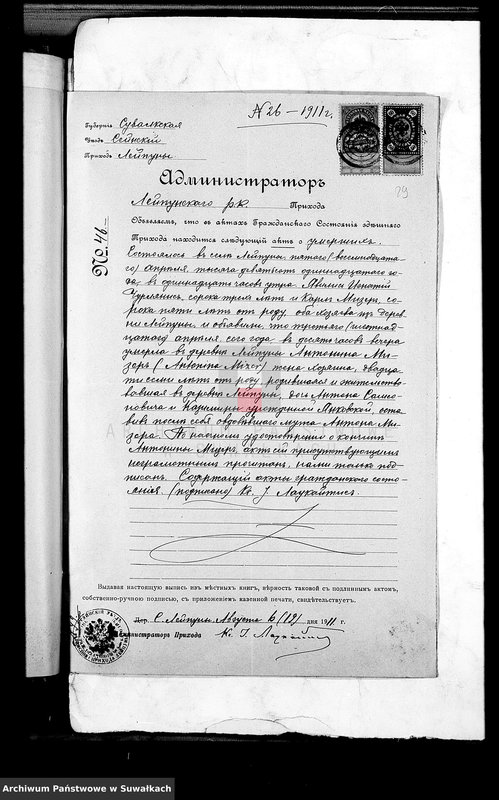 №26 – 1911г.
Губернія Сувалкская
Уѣздъ Сейнскій
Приходъ Лейпуны
29
Администраторъ
Лейпунскаго рк. Прихода
Объявляемъ, что въ актахъ Гражданскаго Состоянія здѣшняго
Прихода находится слѣдующій актъ о умершихъ.
№. 46
Состоялось въ селѣ Лейпуны пятаго (восемнадцата-
го) Апрѣля, тысяча девятьсотъ одиннадцатаго го-
да, въ одиннадцать часовъ утра. Явились Игнатій
сорока трехъ лѣтъ и Карлъ Мизеръ, со-
рока пяти лѣтъ отъ роду, оба хозяева изъ дерев
ни Лейпуны, и объявили, что третьяго (шестнад-
цатаго) апрѣля, сего года въ десять часовъ вечера
умерла въ деревнѣ Лейпуны Антонина Ми-
зеръ (Antonta Mizer) жена хозяина, двадца-
ти семи лѣтъ отъ роду, родившаяся и жительство-
вавшая въ деревнѣ Лейпуны, дочь Антона Само-
повича и Казимиры урожденной Янковской, оста
вивъ послѣ себя овдовѣвшаго мужа Антона Ми-
зера. По наочномъ удостовѣреніи о кончинѣ
Антонины Мизеръ, актъ сей присутствующимъ
неграмотнымъ прочитанъ, нами только под-
писанъ. Содержащій акты гражданскаго состо-
янія. (подписано) Кс. І. Лаукайтисъ.
Выдавая настоящую выпись изъ мѣстныхъ книгъ, вѣрность таковой съ подлиннымъ актомъ,
собственно-ручною подписью, съ приложеніемъ казенной печати, свидѣтельствуетъ.
Дер. С. Лейпуны Августа 6 (19) дня 1911 г.
Администраторъ Прихода Кс. І. Лаукайтисъ
Archiwum Państwowe w Suwałkach